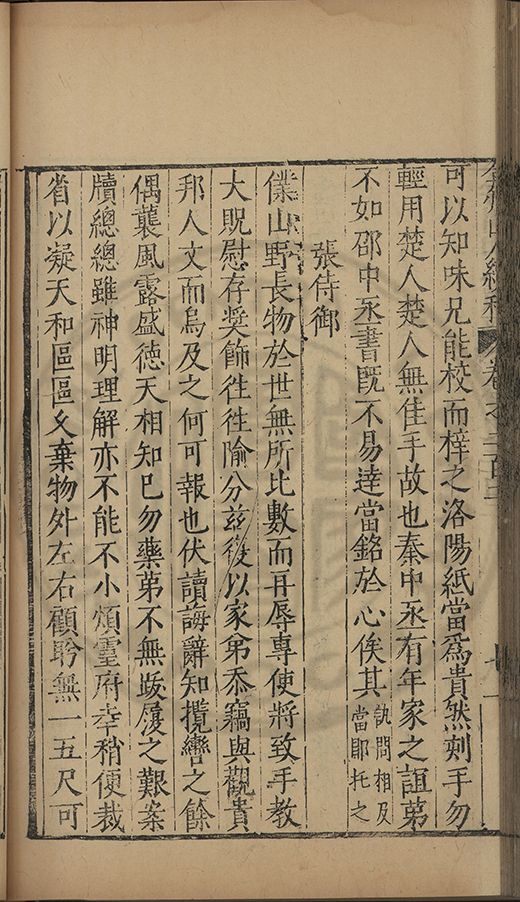 可以知味兄能校而梓之洛陽紙當爲貴然刻手勿
輕用楚人楚人無佳手故也秦中丞有年家之誼第
不如邵中丞書既不易達當銘於心俟其訊問相及當即托之
張侍御
僕山野長物於世無所比數而再辱專使將致手教
大貺慰存奬飾徃徃隃分兹役以家弟忝竊與觀貴
邦人文而烏及之何可報也伏讀誨辭知攬轡之餘
偶襲風露盛德天相知已勿藥第不無跋履之艱案
牘總總雖神明理解亦不能不小煩靈府幸稍便裁
省以凝天和區區久棄物外左右顧盻無一五尺可